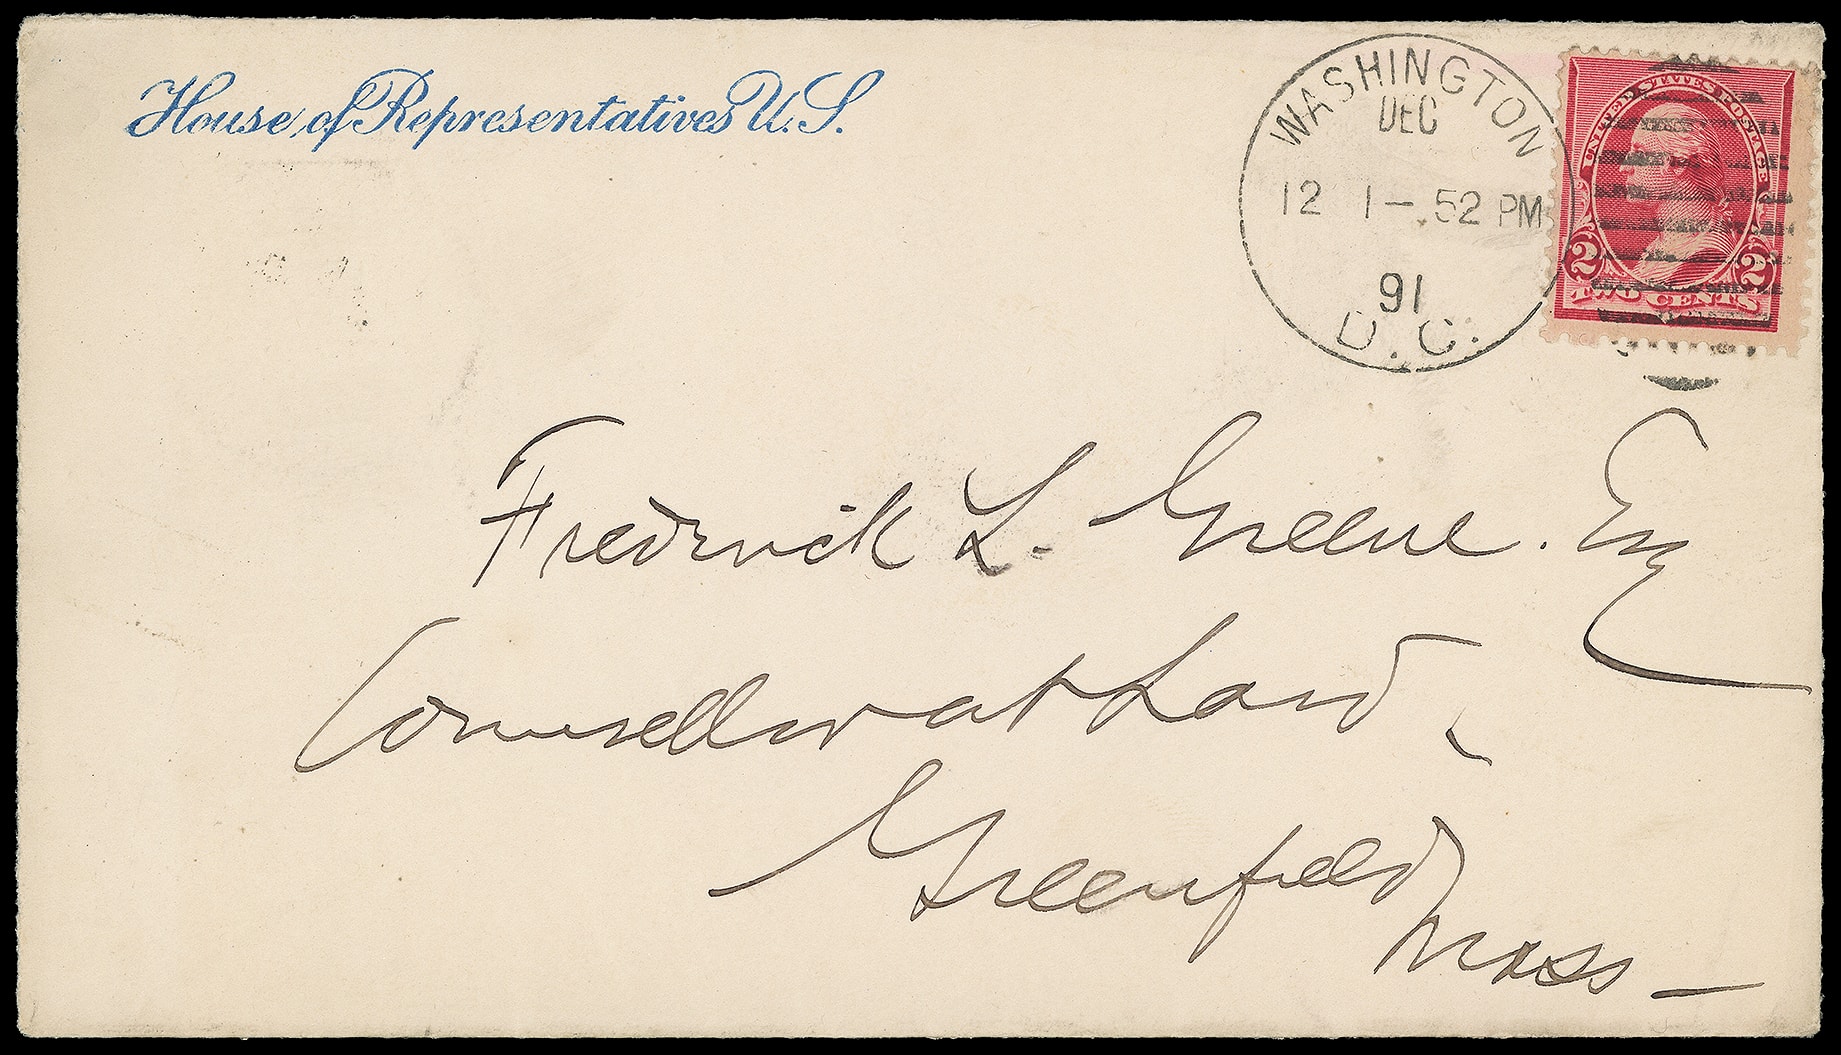 House of Representatives U.S.
WASHINGTON
DEC
12 1-52 PM
91
D.C.
UNITED STATES POSTAGE
2 2
TWO CENTS
Fredrick L. Greene. Esq
Counsellor at Law,
Greenfield
Mass -